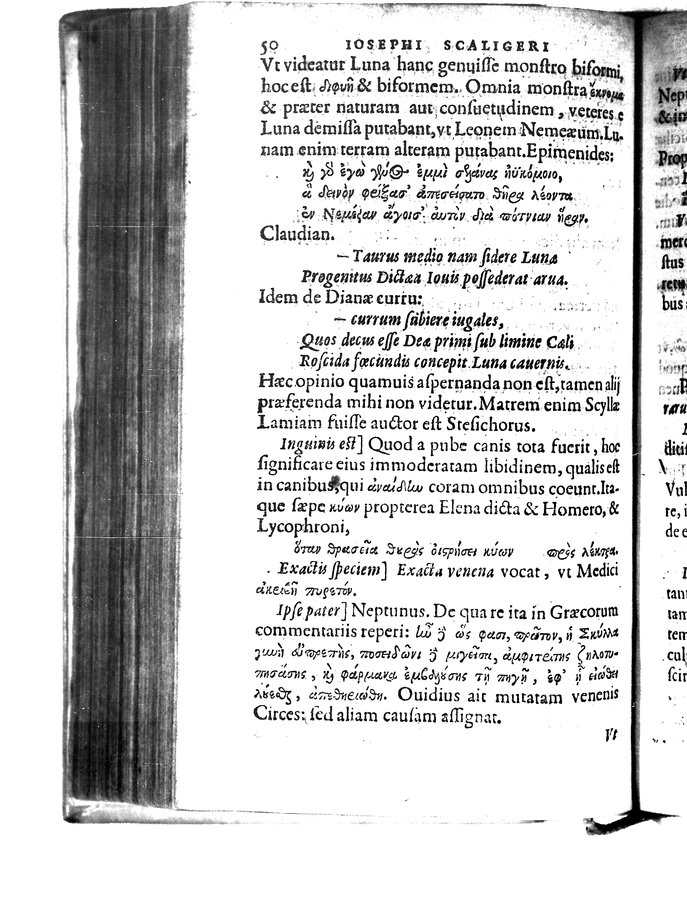 50 IOSEPHI SCALIGERI
Vt videatur Luna hanc genuiſſe monſtro biformi,
hoc eſt διφυῆ & biformem. Omnia monſtra
& præter naturam aut conſuetudinem, veteres e
Luna demiſſa putabant, vt Leonem Nemeæum. Lu-
nam enim terram alteram putabant. Epimenides:
καὶ γὰρ ἐγὼ γένος ἐμμὶ σελάνας ἠϋκόμοιο,
ἃ δεινὸν φρίξασ' ἀπεσείσατο θῆρα λέοντα
ἐν Νεμέᾳ αὐτὸν διὰ πότνιαν ἥραν.
Claudian.
— Taurus medio nam ſidere Lunæ
Progenitus Dictæa Iouis poſſederat arua.
Idem de Dianæ curru:
— currum ſubiere iugales,
Quos decus eſſe Deæ primi ſub limine Cæli
Roſcida fœcundis concepit Luna cauernis.
Hæc opinio quamuis aſpernanda non eſt, tamen alij
præferenda mihi non videtur. Matrem enim Scyllæ
Lamiam fuiſſe auctor eſt Steſichorus.
Inguinis eſt] Quod a pube canis tota fuerit, hoc
ſignificare eius immoderatam libidinem, qualis eſt
in canibus, qui ἀναίδην coram omnibus coeunt. Ita-
que ſæpe κύων propterea Elena dicta & Homero, &
Lycophroni,
ὅταν θρασεῖα θουρὰς οἰστρήσῃ κύων πρὸς λέκτρα.
Exactis ſpeciem] Exacta venena vocat, vt Medici
ἀκριβῆ πυρετόν.
Ipſe pater] Neptunus. De qua re ita in Græcorum
commentariis reperi: ἦν δὲ ὥς φασι, πρῶτον, ἡ Σκύλλα
γυνὴ εὐπρεπὴς, ποσειδῶνι δὲ μιγεῖσα, ἀμφιτρίτης ζηλοτυ-
πησάσης, καὶ φάρμακα ἐμβαλούσης τῇ πηγῇ, ἐφ' ᾗ εἰώθει
λούεσθαι, ἀπεθηριώθη. Ouidius ait mutatam venenis
Circes: ſed aliam cauſam aſſignat.
Vt